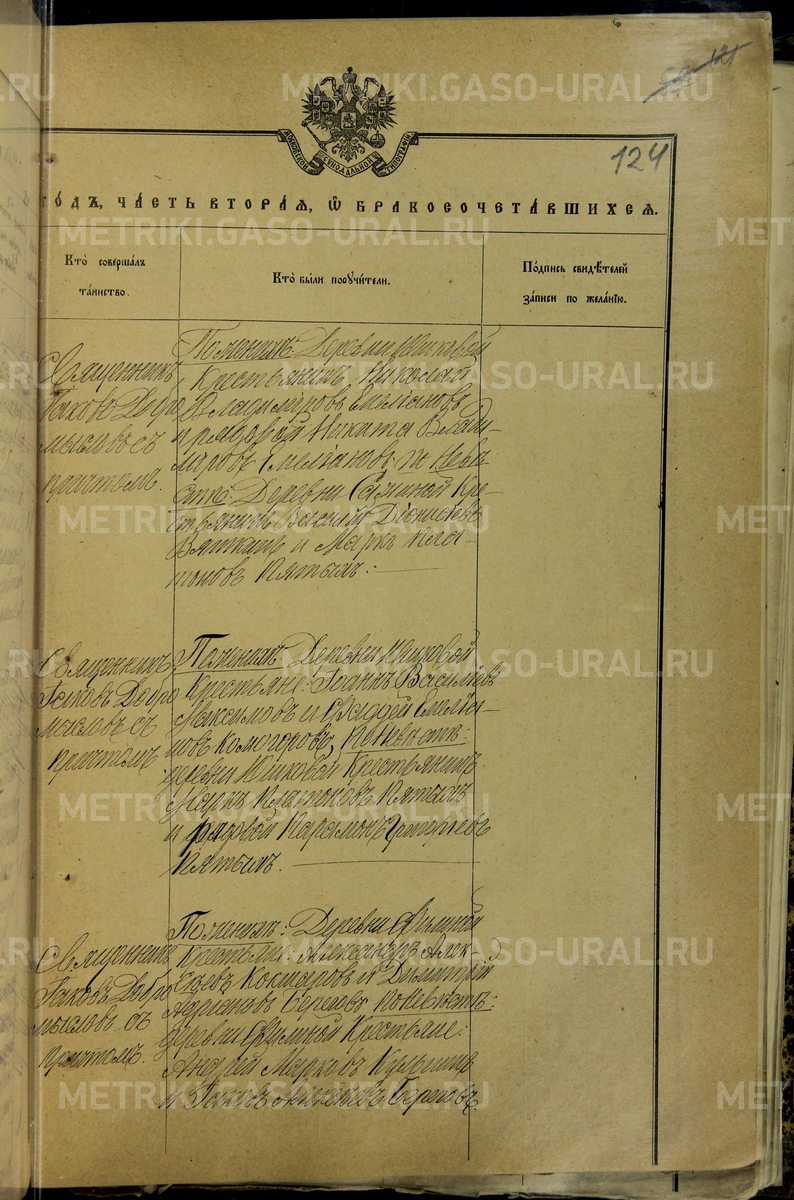 121
124
МОСКОВСКОЙ СѴНОДАЛЬНОЙ ТИПОГРАФІИ
ГО́ДЪ, ЧА́СТЬ ВТОРА́Я, Ѡ БРАКОСОЧЕТА́ВШИХСЯ.
Кто̀ соверша́лъ
та́инство.
Кто̀ бы́ли поручи́тели.
По́дпись свидѣ́телей
за́писи по жела́нію.
Священникъ
Іаковъ Добро
мысловъ съ
причтомъ.
По женихѣ: Деревни
Крестьянинъ, Николай
Владиміровъ Емельяновъ
и рядовой Никита Влади-
міровъ Емельяновъ, по невѣ-
стѣ: Деревни Крес-
тьянинъ Василій Діонисіевъ
и Маркъ Пла-
тоновъ Пятыхъ.
Священникъ
Іаковъ Добро
мысловъ съ
причтомъ
По женихѣ: Деревни
Крестьяне: Іоаннъ Васильевъ
Максимовъ и Фаддей Емелья-
новъ Комогоровъ, по невѣстѣ:
деревни Крестьянинъ
Маркъ Платоновъ Пятыхъ
и рядовой Парамонъ Григорьевъ
Пятыхъ.
Священникъ
Іаковъ Добро
мысловъ съ
причтомъ.
По женихѣ: Деревни
Крестьяне: Александръ Алек
сѣевъ Кокшаровъ и Димитрій
Адріановъ Береговъ, по невѣстѣ:
деревни Крестьяне:
Андрей Марковъ
и Іаковъ Береговъ
METRIKI.GASO-URAL.RU